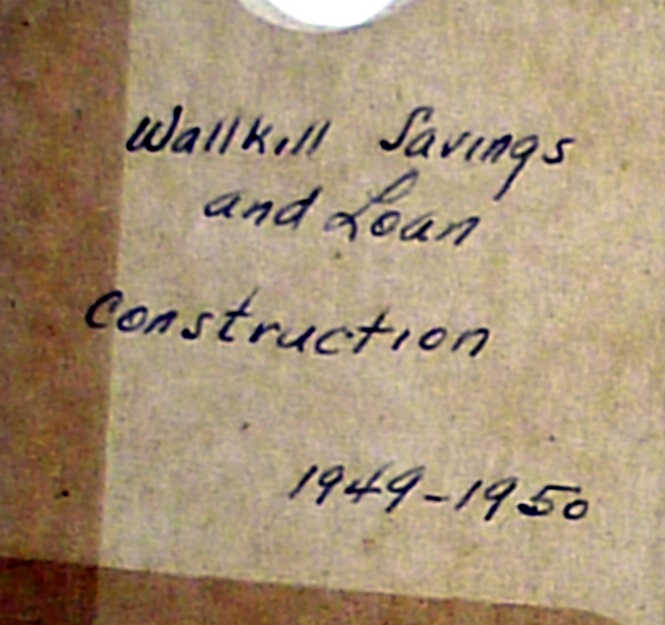 Wallkill Savings
and Loan
Construction
1949-1950